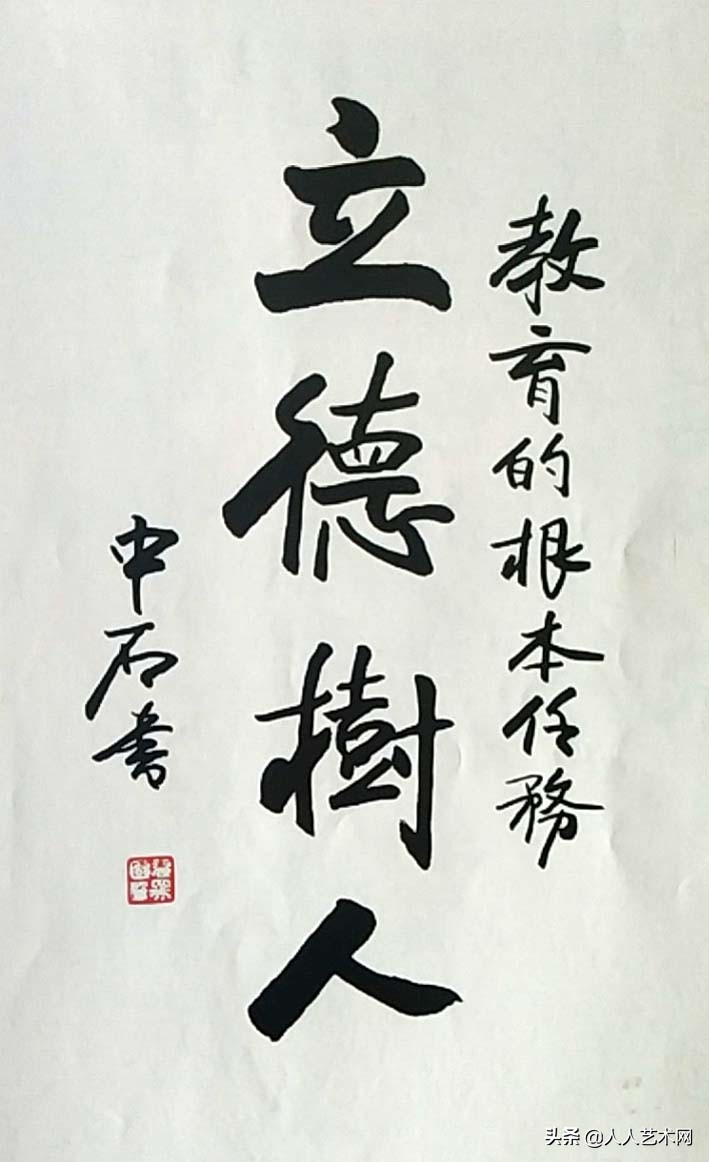 教育的根本任務
立德樹人
中石書
头条 @人人艺术网